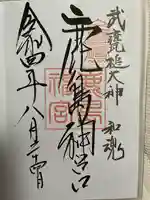 武甕槌大神 和魂
鹿島神宮
令和四年八月